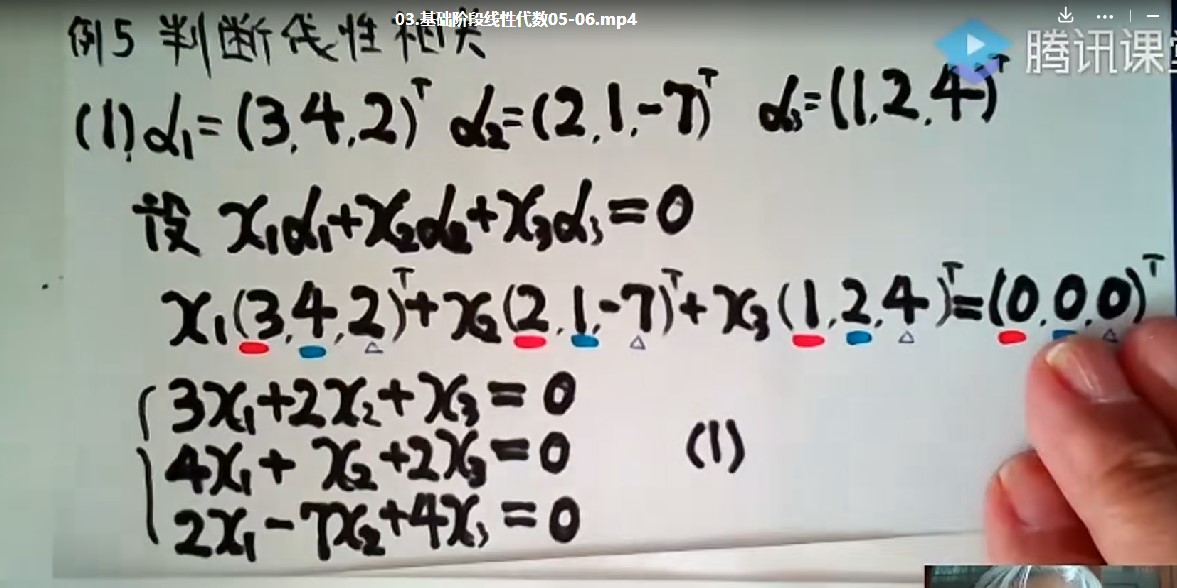 03.基础阶段线性代数05-06.mp4
腾讯课堂
例5 判断线性相关
(1) α₁=(3,4,2)ᵀ α₂=(2,1,-7)ᵀ α₃=(1,2,4)ᵀ
设 x₁α₁+x₂α₂+x₃α₃=0
x₁(3,4,2)ᵀ+x₂(2,1,-7)ᵀ+x₃(1,2,4)ᵀ=(0,0,0)ᵀ
3x₁+2x₂+x₃=0
4x₁+x₂+2x₃=0 (1)
2x₁-7x₂+4x₃=0